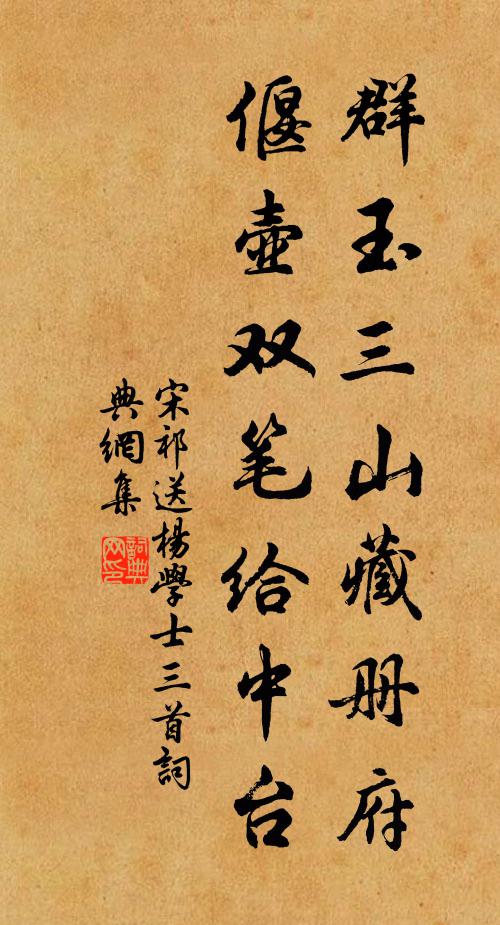 群玉三山藏册府
偃壶双笔给中台
宋祁送楊學士三首詞
典網集
詞典網印